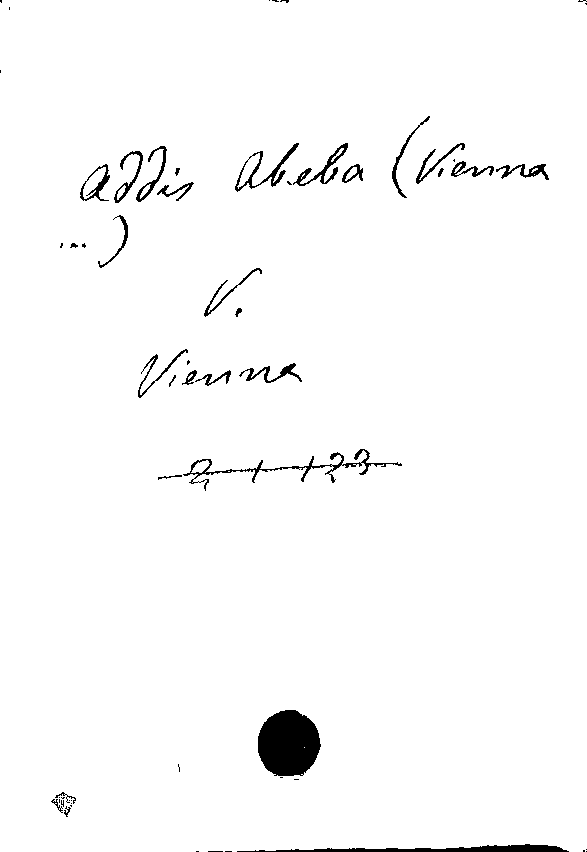 Addis Abeba (Vienna
...)
V.
Vienna